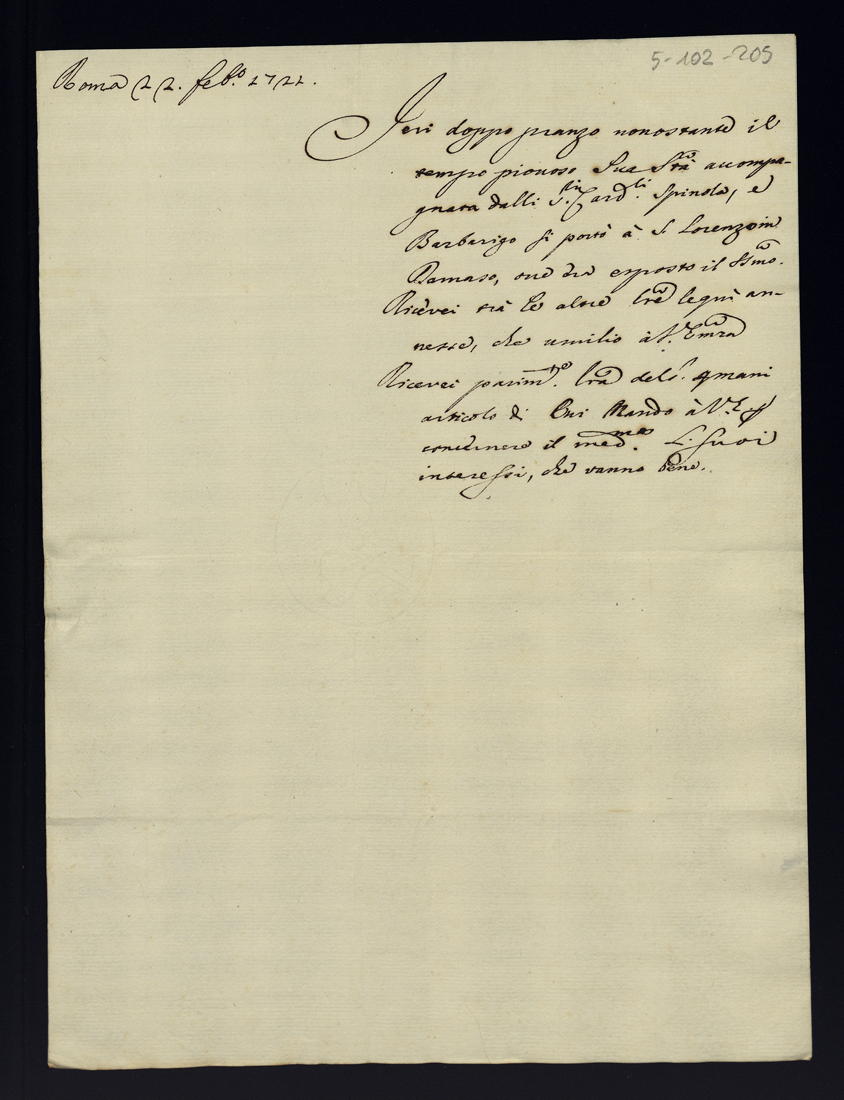 5-102-205
Roma 22. feb.º 1721.
Ieri doppo pranzo nonostante il
tempo piovoso Sua Stà accompa-
gnata dalli S.ri Card.li Spinola, e
Barbarigo si portò à S. Lorenzo in
Damaso, ove era esposto il SSmo.
Ricevei trà le altre lrẽ le quì an-
nesse, che umilio à V. Emza
Ricevei parimte. lra del S.
articolo di Cui Mando à V. E. p
contenere il medmo. L. suoi
interessi, che vanno bene.